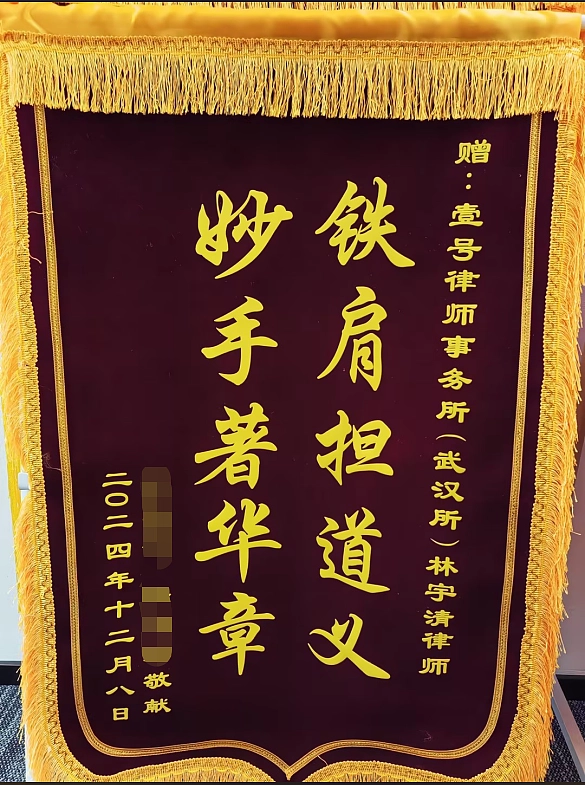 赠：壹号律师事务所（武汉所）林宇清律师
铁肩担道义
妙手著华章
敬献
二〇二四年十二月八日